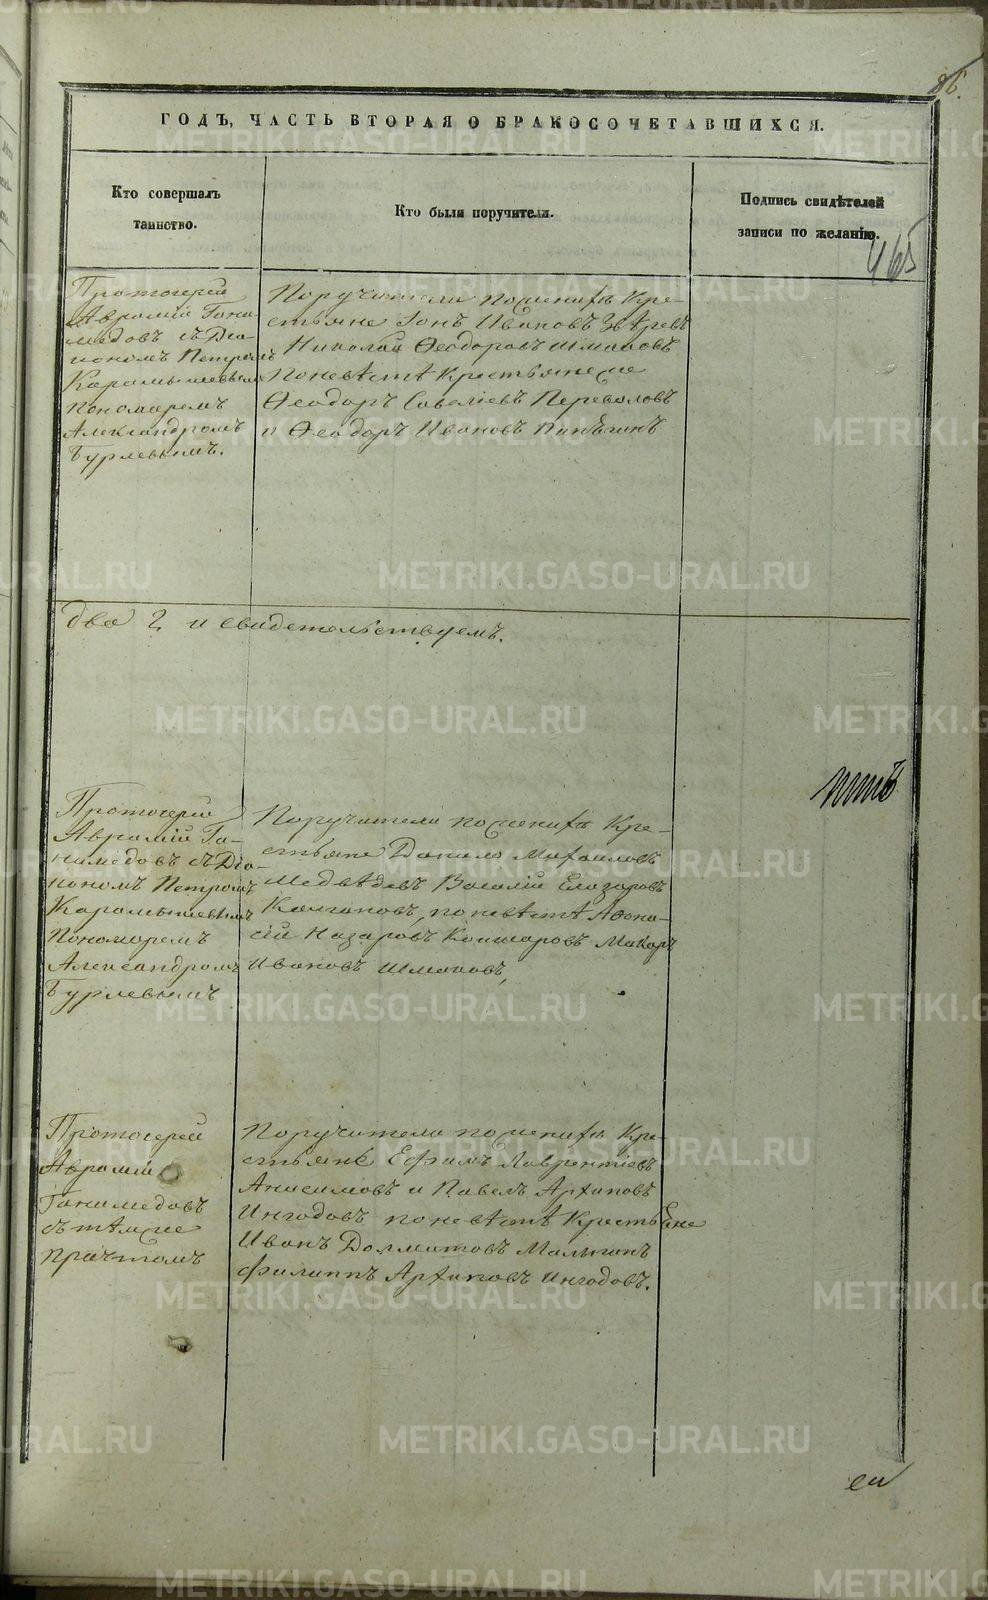 86.
ГОДЪ, ЧАСТЬ ВТОРАЯ О БРАКОСОЧЕТАВШИХСЯ.
Кто совершалъ
таинство.
Кто были поручители.
Подпись свидѣтелей
записи по желанію.
465
Протоіерей
Аврамій Гани-
медовъ съ Діа-
кономъ Петромъ
Карамышевымъ
Пономаремъ
Александромъ
Бурлевымъ.
Поручители по женихѣ Кре-
стьяне Іонъ Ивановъ Звѣревъ
Николай Ѳеодоровъ Шмаковъ
По невѣстѣ Крестьяне же
Ѳеодоръ Савеліевъ Переваловъ
и Ѳеодоръ Ивановъ
два 2, и свидетельствуемъ.
Протоіерей
Аврамій Га-
нимедовъ съ Діа-
кономъ Петромъ
Карамышевымъ
Пономаремъ
Александромъ
Бурлевымъ
Поручители по женихѣ Кре-
стьяне Данило Михаиловъ
Медвѣдевъ Василій Елозаровъ
Калгановъ, по невѣстѣ Афона-
сій Назаровъ Кошкаровъ Макаръ
Ивановъ Шмаковъ,
Протоіерей
Аврамій
Ганимедовъ
съ тѣмже
причтомъ
Поручители по женихѣ Кре-
стьяне Ефимъ Лаврентіевъ
Анисимовъ и Павелъ Архиповъ
Ингодовъ по невѣстѣ Крестьяне
Иванъ Долматовъ
Филиппъ Архиповъ Ингодовъ.
METRIKI.GASO-URAL.RU